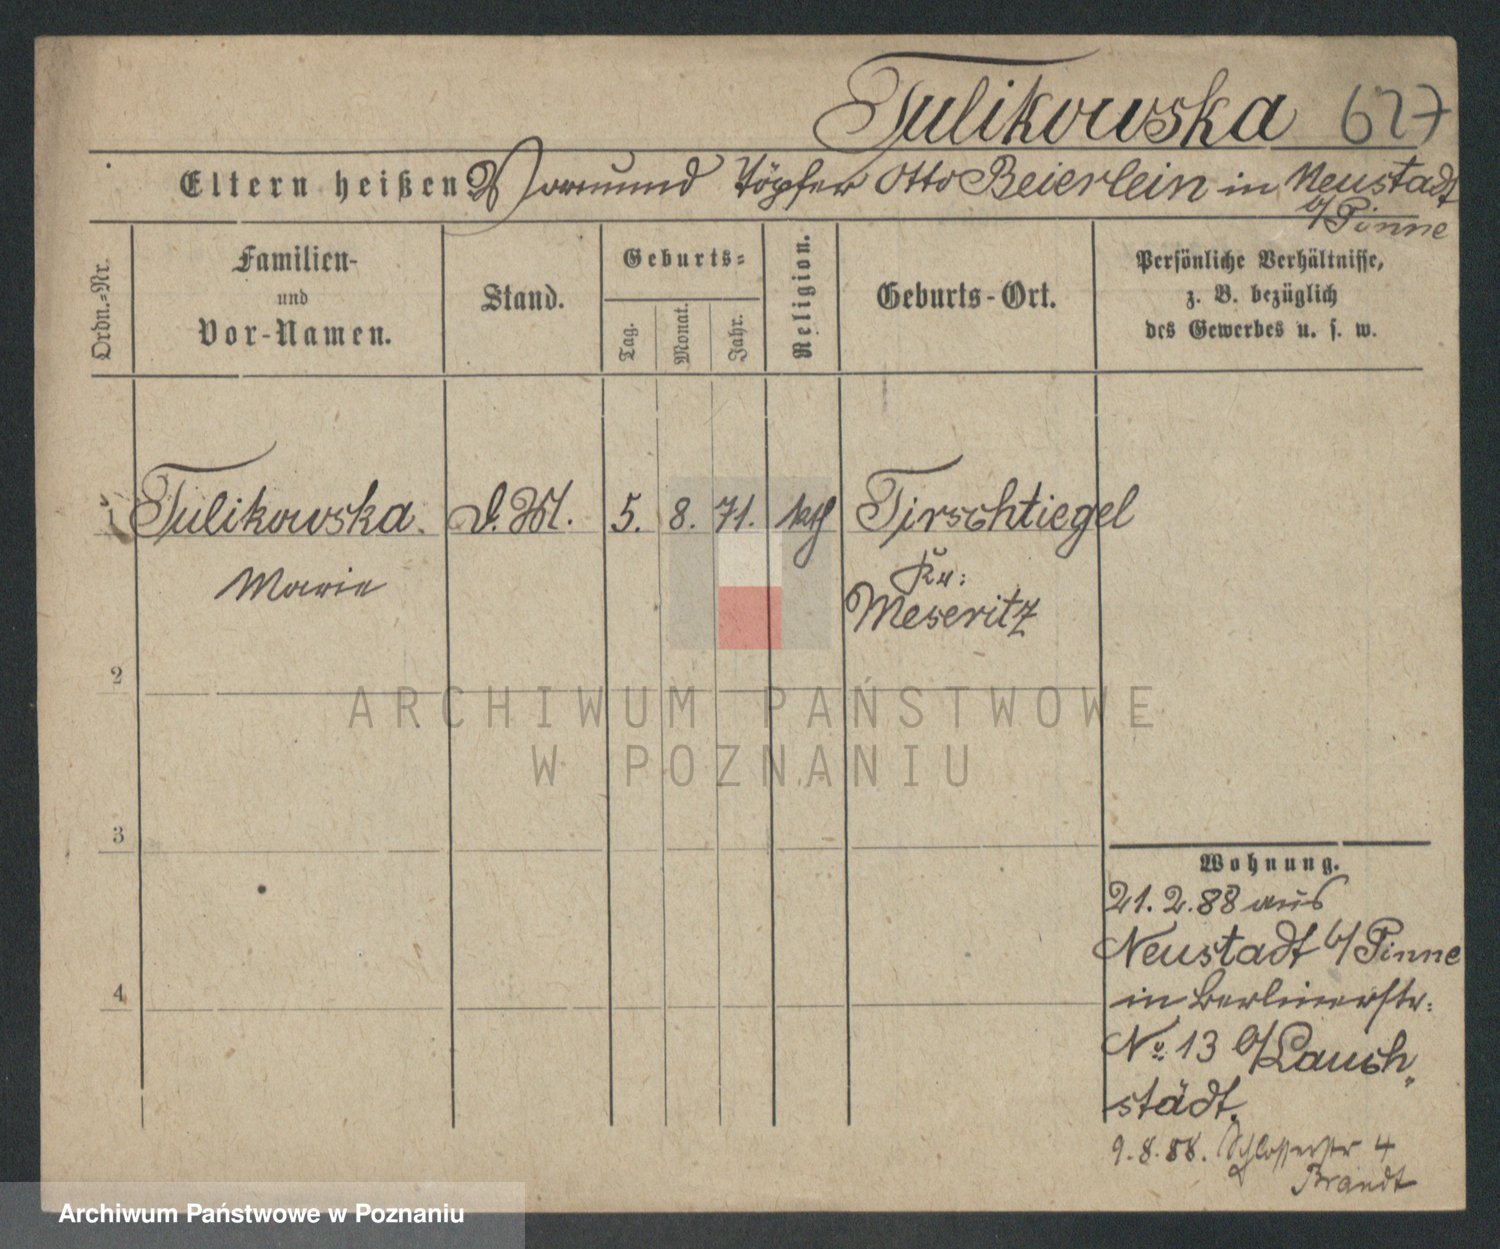 Tulikowska 627
Eltern heißen Vormund Töpfer Otto Beierlein in Neustadt
b/Pinne
Ordn.-Nr.
Familien-
und
Vor-Namen.
Stand.
Geburts-
Tag.
Monat.
Jahr.
Religion.
Geburts-Ort.
Persönliche Verhältnisse,
z. B. bezüglich
des Gewerbes u. s. w.
1 Tulikowska D. M. 5. 8. 71. kth Tirschtiegel
Marie
Kr:
Meseritz
2
3
4
Wohnung.
21. 2. 88 aus
Neustadt b/Pinne
in Berlinerstr:
No 13 b/Lauch
städt.
9. 8. 88. Schlosserstr 4
Brandt
ARCHIWUM PAŃSTWOWE
W POZNANIU
Archiwum Państwowe w Poznaniu